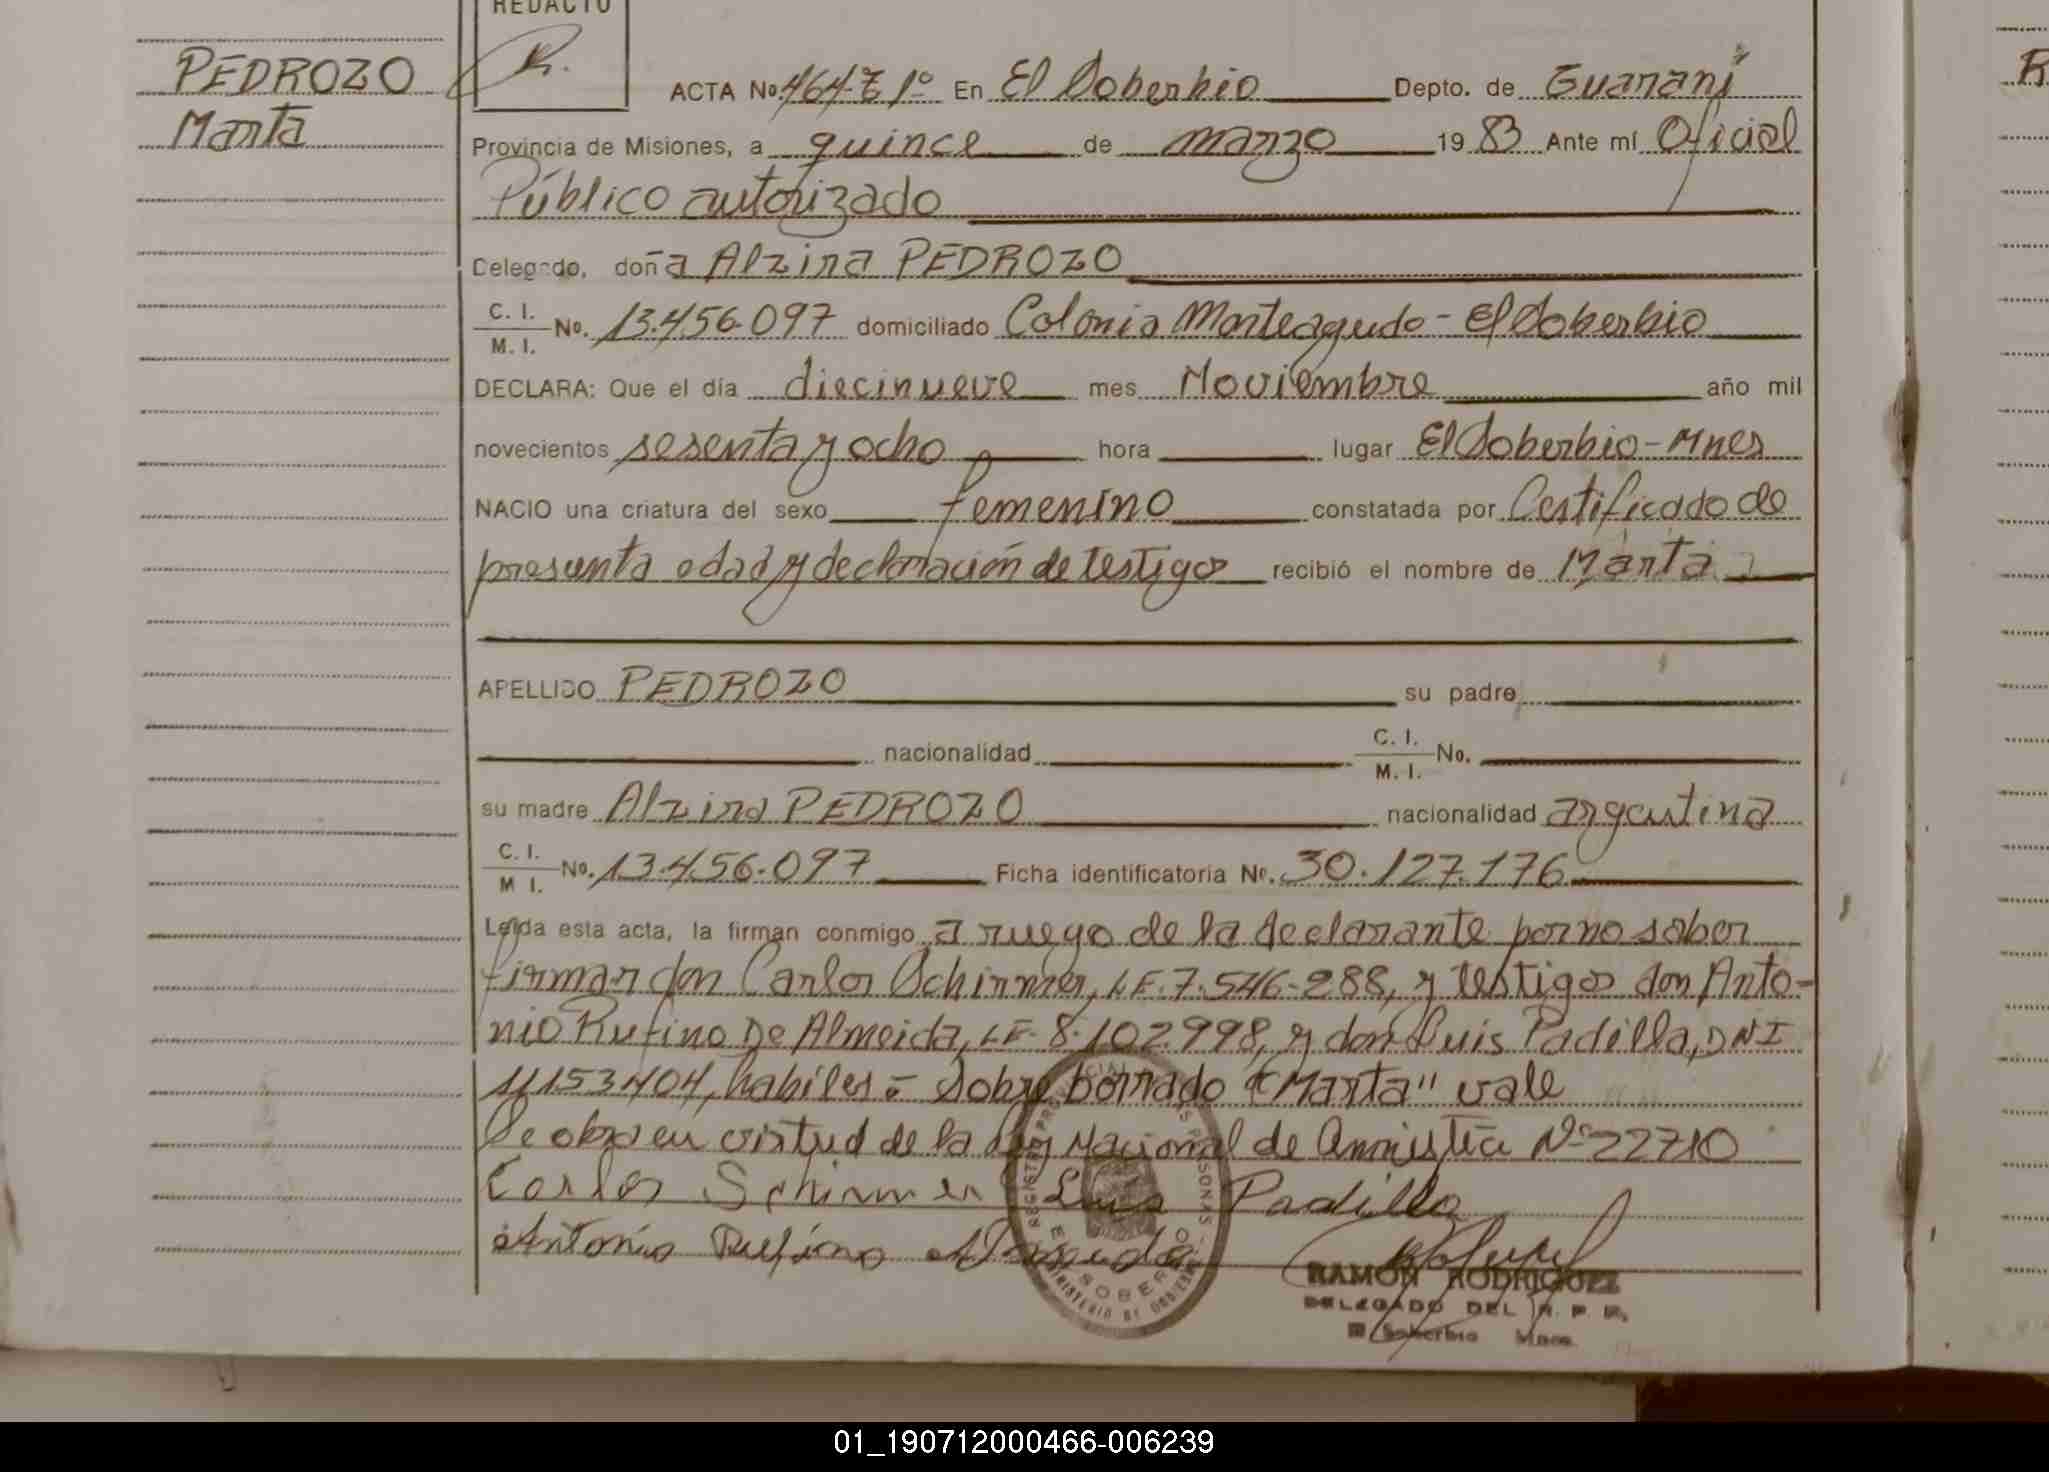 REDACTO
PEDROZO
Marta
ACTA No. 464-T 1º En El Soberbio Depto. de Guaraní
Provincia de Misiones, a quince de marzo 1983 Ante mí Oficial
Público autorizado
Delegado, doña Alzira PEDROZO
C. I.
M. I. No. 13.456.097 domiciliado Colonia Monteagudo - El Soberbio
DECLARA: Que el día diecinueve mes Noviembre año mil
novecientos sesenta y ocho hora lugar El Soberbio - Mnes
NACIO una criatura del sexo femenino constatada por Certificado de
presunta edad y declaración de testigos recibió el nombre de Marta
APELLIDO PEDROZO su padre
nacionalidad C. I.
M. I. No.
su madre Alzira PEDROZO nacionalidad argentina
C. I.
M I. No. 13.456.097 Ficha identificatoria Nº. 30.127.176
Leída esta acta, la firman conmigo a ruego de la declarante por no saber
firmar don Carlos Schirmer, LE. 7.546.288, y testigos don Anto-
nio Rufino De Almeida, LE. 8.102.998, y don Luis Padilla, DNI
11153404, habiles.- Sobre borrado "Marta" vale
Se obra en virtud de la Ley Nacional de Amnistía Nº 22710
Carlos Schirmer Luis Padilla
Antonio Rufino Almeida
RAMON RODRIGUEZ
DELEGADO DEL R. P. P.
El Soberbio Mnes.
R
01_190712000466-006239